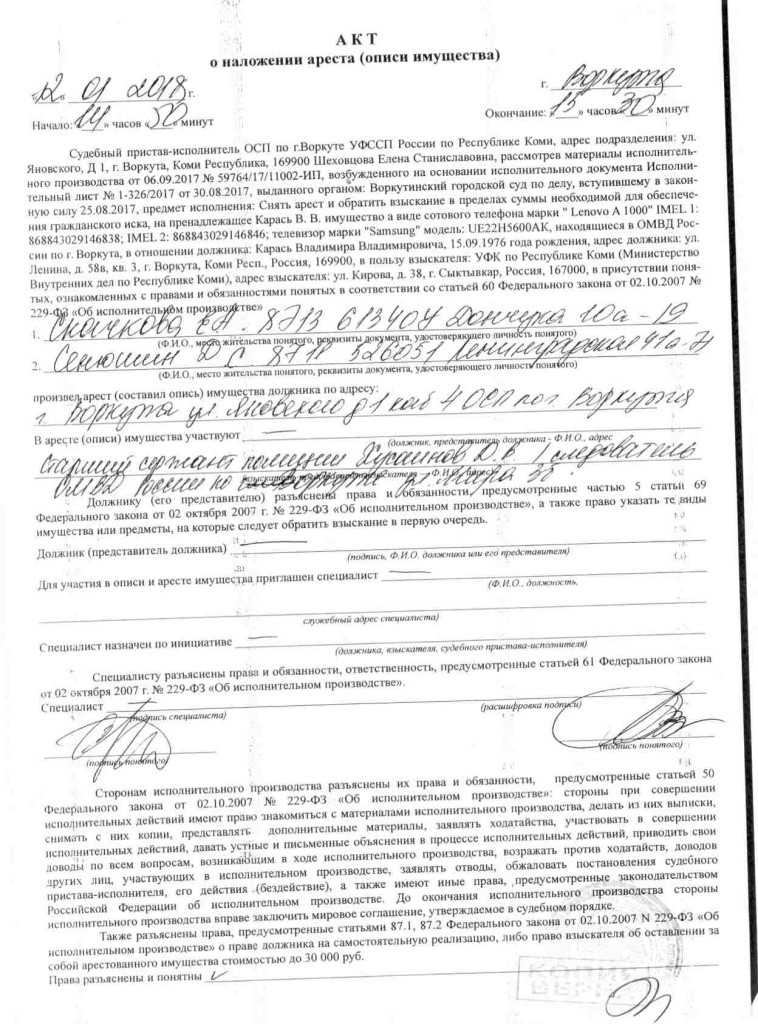 А К Т
о наложении ареста (описи имущества)
«12» 01 2018 г.
г. Воркута
Начало: «14» часов «50» минут
Окончание: «15» часов «30» минут
Судебный пристав-исполнитель ОСП по г.Воркуте УФССП России по Республике Коми, адрес подразделения: ул.
Яновского, Д 1, г. Воркута, Коми Республика, 169900 Шеховцова Елена Станиславовна, рассмотрев материалы исполнитель-
ного производства от 06.09.2017 № 59764/17/11002-ИП, возбужденного на основании исполнительного документа Исполни-
тельный лист № 1-326/2017 от 30.08.2017, выданного органом: Воркутинский городской суд по делу, вступившему в закон-
ную силу 25.08.2017, предмет исполнения: Снять арест и обратить взыскание в пределах суммы необходимой для обеспече-
ния гражданского иска, на пренадлежащее Карась В. В. имущество а виде сотового телефона марки " Lenovo A 1000" IMEL 1:
868843029146838; IMEL 2: 868843029146846; телевизор марки "Samsung" модель: UE22H5600AK, находящиеся в ОМВД Рос-
сии по г. Воркута, в отношении должника: Карась Владимира Владимировича, 15.09.1976 года рождения, адрес должника: ул.
Ленина, д. 58в, кв. 3, г. Воркута, Коми Респ., Россия, 169900, в пользу взыскателя: УФК по Республике Коми (Министерство
Внутренних дел по Республике Коми), адрес взыскателя: ул. Кирова, д. 38, г. Сыктывкар, Россия, 167000, в присутствии поня-
тых, ознакомленных с правами и обязанностями понятых в соответствии со статьей 60 Федерального закона от 02.10.2007 №
229-ФЗ «Об исполнительном производстве»
1. Скачкова Е.А. 8713 613404 Дончука 10а-19
(Ф.И.О., место жительства понятого, реквизиты документа, удостоверяющего личность понятого)
2. Сенюшин Д С 8711 526051 Ленинградская 41а-
(Ф.И.О., место жительства понятого, реквизиты документа, удостоверяющего личность понятого)
произвел арест (составил опись) имущества должника по адресу:
г. Воркута ул. Яновского д 1 каб 4 ОСП по г. Воркута
В аресте (описи) имущества участвуют
(должник, представитель должника - Ф.И.О., адрес
старший сержант полиции Д.В. следователь
взыскатель, представитель взыскателя - Ф.И.О., адрес)
ОМВД России по ул. Мира 3б
Должнику (его представителю) разъяснены права и обязанности, предусмотренные частью 5 статьи 69
Федерального закона от 02 октября 2007 г. № 229-ФЗ «Об исполнительном производстве», а также право указать те виды
имущества или предметы, на которые следует обратить взыскание в первую очередь.
Должник (представитель должника)
(подпись, Ф.И.О. должника или его представителя)
Для участия в описи и аресте имущества приглашен специалист
(Ф.И.О., должность,
служебный адрес специалиста)
Специалист назначен по инициативе
(должника, взыскателя, судебного пристава-исполнителя)
Специалисту разъяснены права и обязанности, ответственность, предусмотренные статьей 61 Федерального закона
от 02 октября 2007 г. № 229-ФЗ «Об исполнительном производстве».
Специалист
(подпись специалиста)
(расшифровка подписи)
(подпись понятого)
(подпись понятого)
Сторонам исполнительного производства разъяснены их права и обязанности, предусмотренные статьей 50
Федерального закона от 02.10.2007 № 229-ФЗ «Об исполнительном производстве»: стороны при совершении
исполнительных действий имеют право знакомиться с материалами исполнительного производства, делать из них выписки,
снимать с них копии, представлять дополнительные материалы, заявлять ходатайства, участвовать в совершении
исполнительных действий, давать устные и письменные объяснения в процессе исполнительных действий, приводить свои
доводы по всем вопросам, возникающим в ходе исполнительного производства, возражать против ходатайств, доводов
других лиц, участвующих в исполнительном производстве, заявлять отводы, обжаловать постановления судебного
пристава-исполнителя, его действия (бездействие), а также имеют иные права, предусмотренные законодательством
Российской Федерации об исполнительном производстве. До окончания исполнительного производства стороны
исполнительного производства вправе заключить мировое соглашение, утверждаемое в судебном порядке.
Также разъяснены права, предусмотренные статьями 87.1, 87.2 Федерального закона от 02.10.2007 N 229-ФЗ «Об
исполнительном производстве» о праве должника на самостоятельную реализацию, либо право взыскателя об оставлении за
собой арестованного имущества стоимостью до 30 000 руб.
Права разъяснены и понятны
КОПИЯ